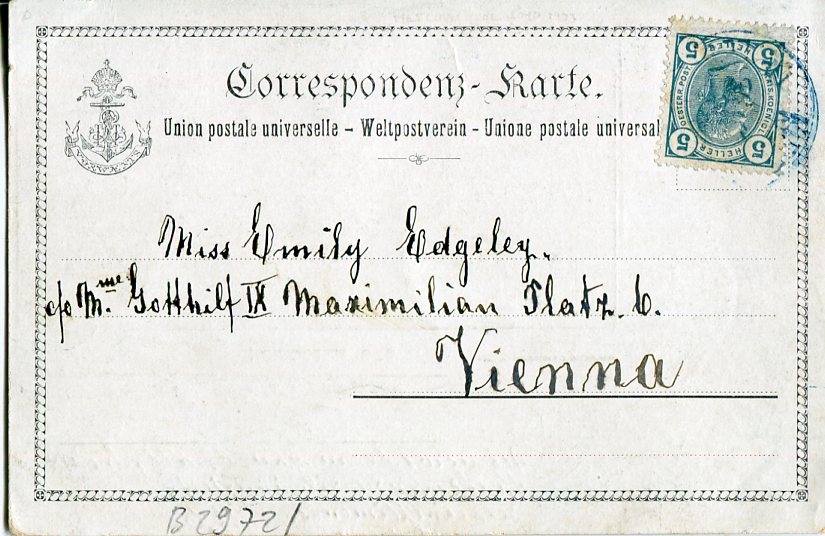 Correspondenz-Karte.
Union postale universelle – Weltpostverein – Unione postale universal
5 HELLER 5
OESTERR. POST
5 HELLER 5
Miss Emily Edgeley.
c/o Mme. Gotthilf IX Maximilian Platz. 6.
Vienna
B 2972/